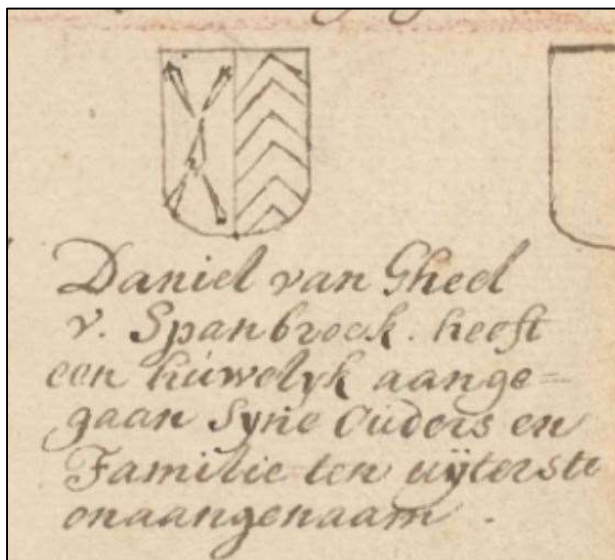 Daniel van Gheel
v. Spanbroek. heeft
een húwelyk aange=
gaan Syne Oúders en
Familie ten uÿterste
onaangenaam.